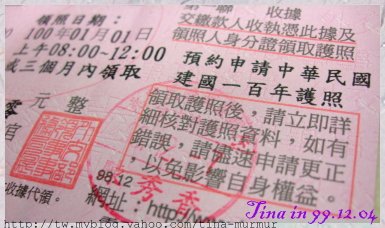 第一聯 收據
交繳款人收執憑此據及
領照人身分證領取護照
領照日期：
100年01月01日
上午08:00~12:00
或三個月內領取
預約申請中華民國
建國一百年護照
零 元 整
領取護照後，請立即詳
細核對護照資料，如有
錯誤，請儘速申請更正
，以免影響自身權益。
98.12
秀香
收據代領。
網址：http
Tina in 99.12.04
http://tw.myblog.yahoo.com/tina-murmur